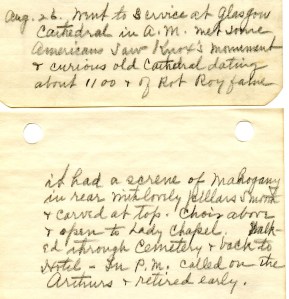 Aug. 26. Went to Service at Glasgow
Cathedral in A.M. met some
Americans Saw Knox's monument
& curious old Cathedral dating
about 1100 & of Rob Roy fame
it had a screne of Mahogany
in rear with lovely pillars
& carved at top. Choir above
& open to Lady Chapel. Walk-
ed through Cemetery & back to
Hotel - In P.M. called on the
Arthurs & retired early.